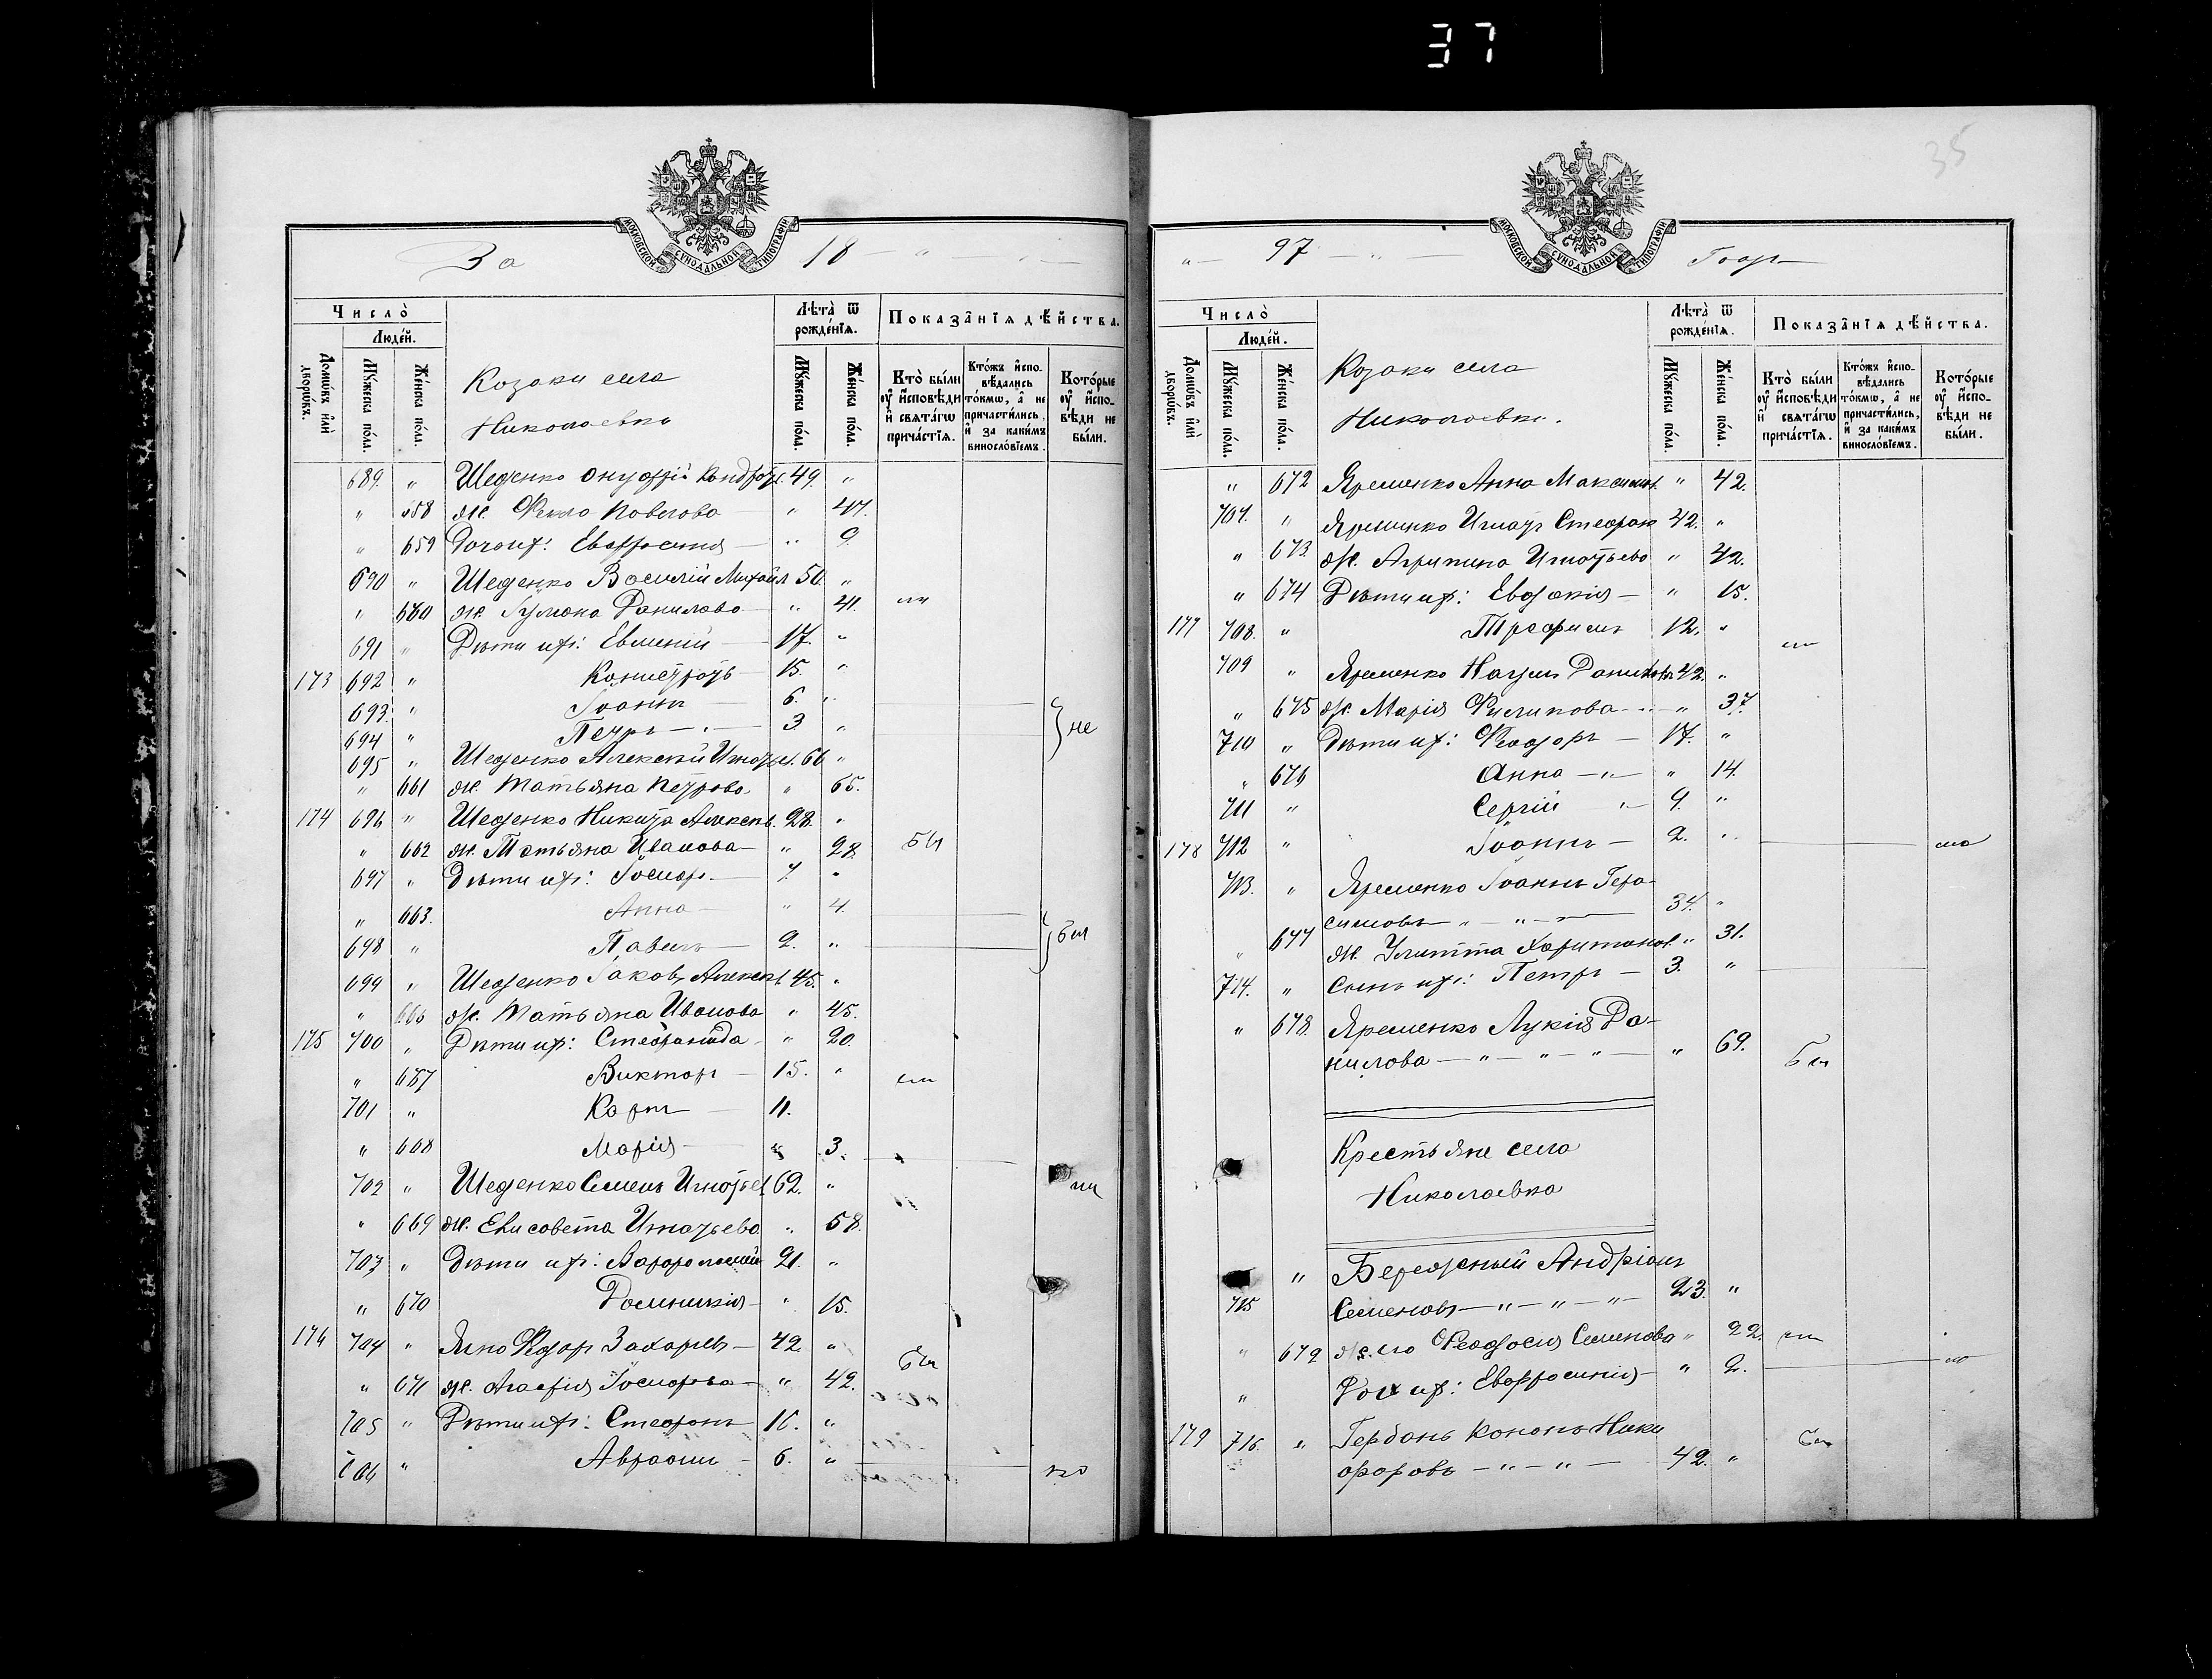 37
35
МОСКОВСКОЙ СѴНОДАЛЬНОЙ ТИПОГРАФІИ
За 18
Число̀
Люде́й.
Домѡ́въ и҆лѝ дворѡ́въ.
Мꙋ́жеска по́ла.
Же́нска по́ла.
Козаки села
Николаевка
Лѣта̀ ѿ рожде́нїѧ.
Мꙋ́жеска по́ла.
Же́нска по́ла.
Показа̑нїѧ дѣ́йства.
Кто̀ бы́ли оу҆ и҆сповѣ́ди и҆ свѧта́гѡ прича́стїѧ.
Кто́жъ и҆спо-вѣ́дались то́кмѡ, а҆ не причасти́лись, и҆ за каки́мъ виносло́вїемъ.
Кото́рые оу҆ и҆спо-вѣ́ди не бы́ли.
689. " Шеденко Онуфрій 49. "
" 658 ж. Фекла Павлова " 47.
" 659 Дочь их: Евфросинія " 9.
690 " Шеденко Василій Михайл 50. "
" 660 ж. Данилова " 41.
691 " Дѣти их: Евмений 17. "
173 692 " 15. "
693. " Іоаннъ 6. "
694 " Петръ 3. " не
695 " Шеденко Алексѣй Игнатьев. 66 "
" 661 ж. Татьяна Петрова " 65.
174 696 " Шеденко Никита Алексѣев. 28. "
" 662 ж. Татьяна Иванова " 28 был
697 " Дѣти их: 7. "
" 663. Анна " 4.
698 " Павелъ 2. " был
699 " Шеденко Іаковъ Алексѣев. 45. "
" 666 ж. Татьяна Иванова " 45.
175 700 " Дѣти их: Стефанида " 20.
" 667 Викторъ 15. "
701 " Карпъ 11.
" 668 Марія " 3.
702 " Шеденко Семенъ Игнатьев. 62. "
" 669 ж. Елисовета Игнатьева " 58.
703 " Дѣти их: Варфоломей 21. "
" 670 Доминикія " 15.
176 704 " Яико Федор Захарьев 42. "
" 671 ж. Агафія " 42. был
705 " Дѣти их: Стефанъ 16. "
706 " Авраамъ 6. "
МОСКОВСКОЙ СѴНОДАЛЬНОЙ ТИПОГРАФІИ
97 Годъ
Число̀
Люде́й.
Домѡ́въ и҆лѝ дворѡ́въ.
Мꙋ́жеска по́ла.
Же́нска по́ла.
Козаки села
Николаевки.
Лѣта̀ ѿ рожде́нїѧ.
Мꙋ́жеска по́ла.
Же́нска по́ла.
Показа̑нїѧ дѣ́йства.
Кто̀ бы́ли оу҆ и҆сповѣ́ди и҆ свѧта́гѡ прича́стїѧ.
Кто́жъ и҆спо-вѣ́дались то́кмѡ, а҆ не причасти́лись, и҆ за каки́мъ виносло́вїемъ.
Кото́рые оу҆ и҆спо-вѣ́ди не бы́ли.
" 672 Яременко Анна Максимов. " 42.
707. " Яременко Игнатъ Стефан 42. "
" 673. ж. Агрипина Игнатьева " 42.
" 674 Дѣти их: Евдокія " 15.
177 708. " Трофимъ 12. "
709 " Яременко Наумъ Данилов. 42. "
" 675 ж. Марія Филипова " 37.
710 " Дѣти их: Феодоръ 17. "
" 676 Анна " 14.
711 " Сергій 9. "
178 712 " Іоаннъ 2. "
713. " Яременко Іоаннъ Гера-
симовъ 34. "
" 677 ж. Улитта Харитонов. " 31.
714. " Сынъ их: Петръ 3. "
" 678. Яременко Лукія Да-
нилова " 69. был
Крестьяне села
Николаевка
" Бережный Андріанъ
715 Семеновъ 23. "
" 679 ж. его Феодосія Семенова " 22.
" Дочь их: Евфросинія " 2.
179 716. " Гербань Кононъ Ники
форовъ 42. " был